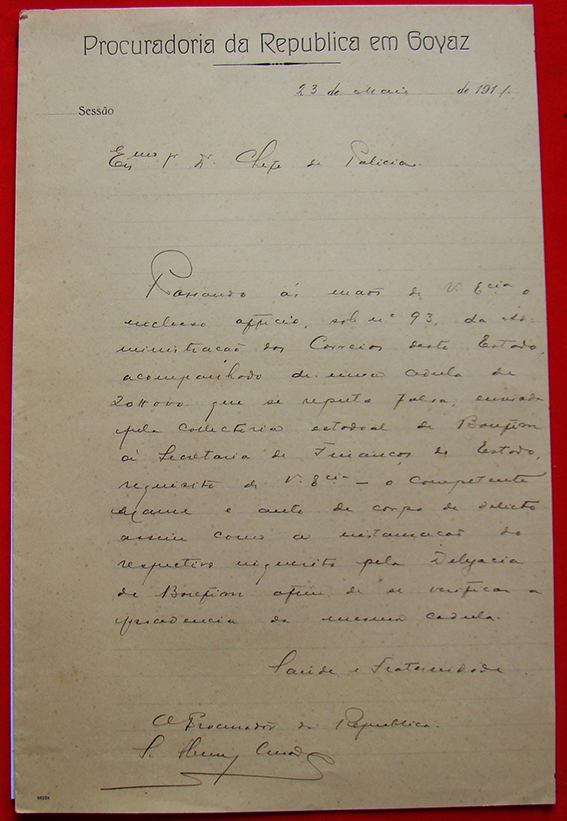 Procuradoria da Republica em Goyaz
23 de Maio de 191
Sessão
Exmo Sr. Dr. Chefe de Policia.
Passando ás mãos de V. Ecia o
incluso officio, sob nº 93, da Ad-
ministração dos Correios deste Estado,
acompanhado de uma cedula de
20$000 que se reputa falsa, enviada
pela collectoria estadoal de Bomfim
á Secretaria de Finanças do Estado,
requisito de V. Ecia – o competente
exame e auto de corpo de delicto
assim como a instauração do
respectivo inquerito pela Delegacia
de Bomfim afim de se verificar a
procedencia da mesma cedula.
Saúde e Fraternidade
O Procurador da Republica.